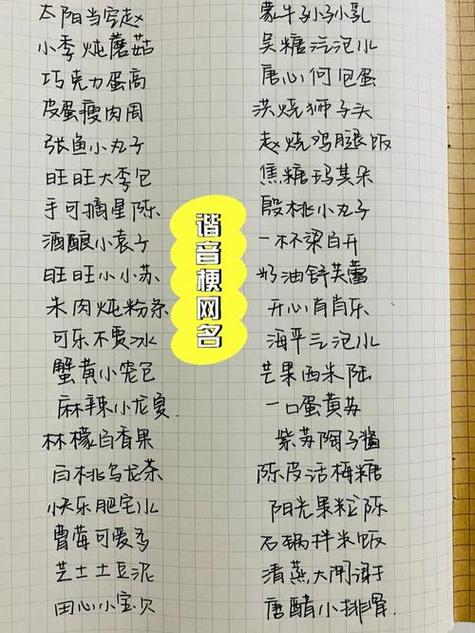 太阳当空赵
小季炖蘑菇
巧克力蛋高
皮蛋瘦肉周
张鱼小丸子
旺旺大李包
手可摘星陈
酒酿小袁子
旺旺小小苏
朱肉炖粉条
可乐不贾冰
蟹黄小龙包
麻辣小龙夏.
林檬百香果
白桃乌龙茶
快乐肥宅水
曹莓可爱多
芝士土豆泥
田心小宝贝
谐音梗网名
蒙牛孙小乳
吴糖汽泡水
唐心何包蛋
洪烧狮子头
赵烧鸡腿饭
焦糖玛其朵
殷桃小丸子
一杯梁白开
奶油舒芙蕾
开心肖肖乐
海平汽泡水
芒果西米陆
一口蛋黄苏
紫苏陶子酱
陈皮话梅糖
阳光果粒陈
石锅拌米饭
清蒸大闸谢
唐醋小排骨.